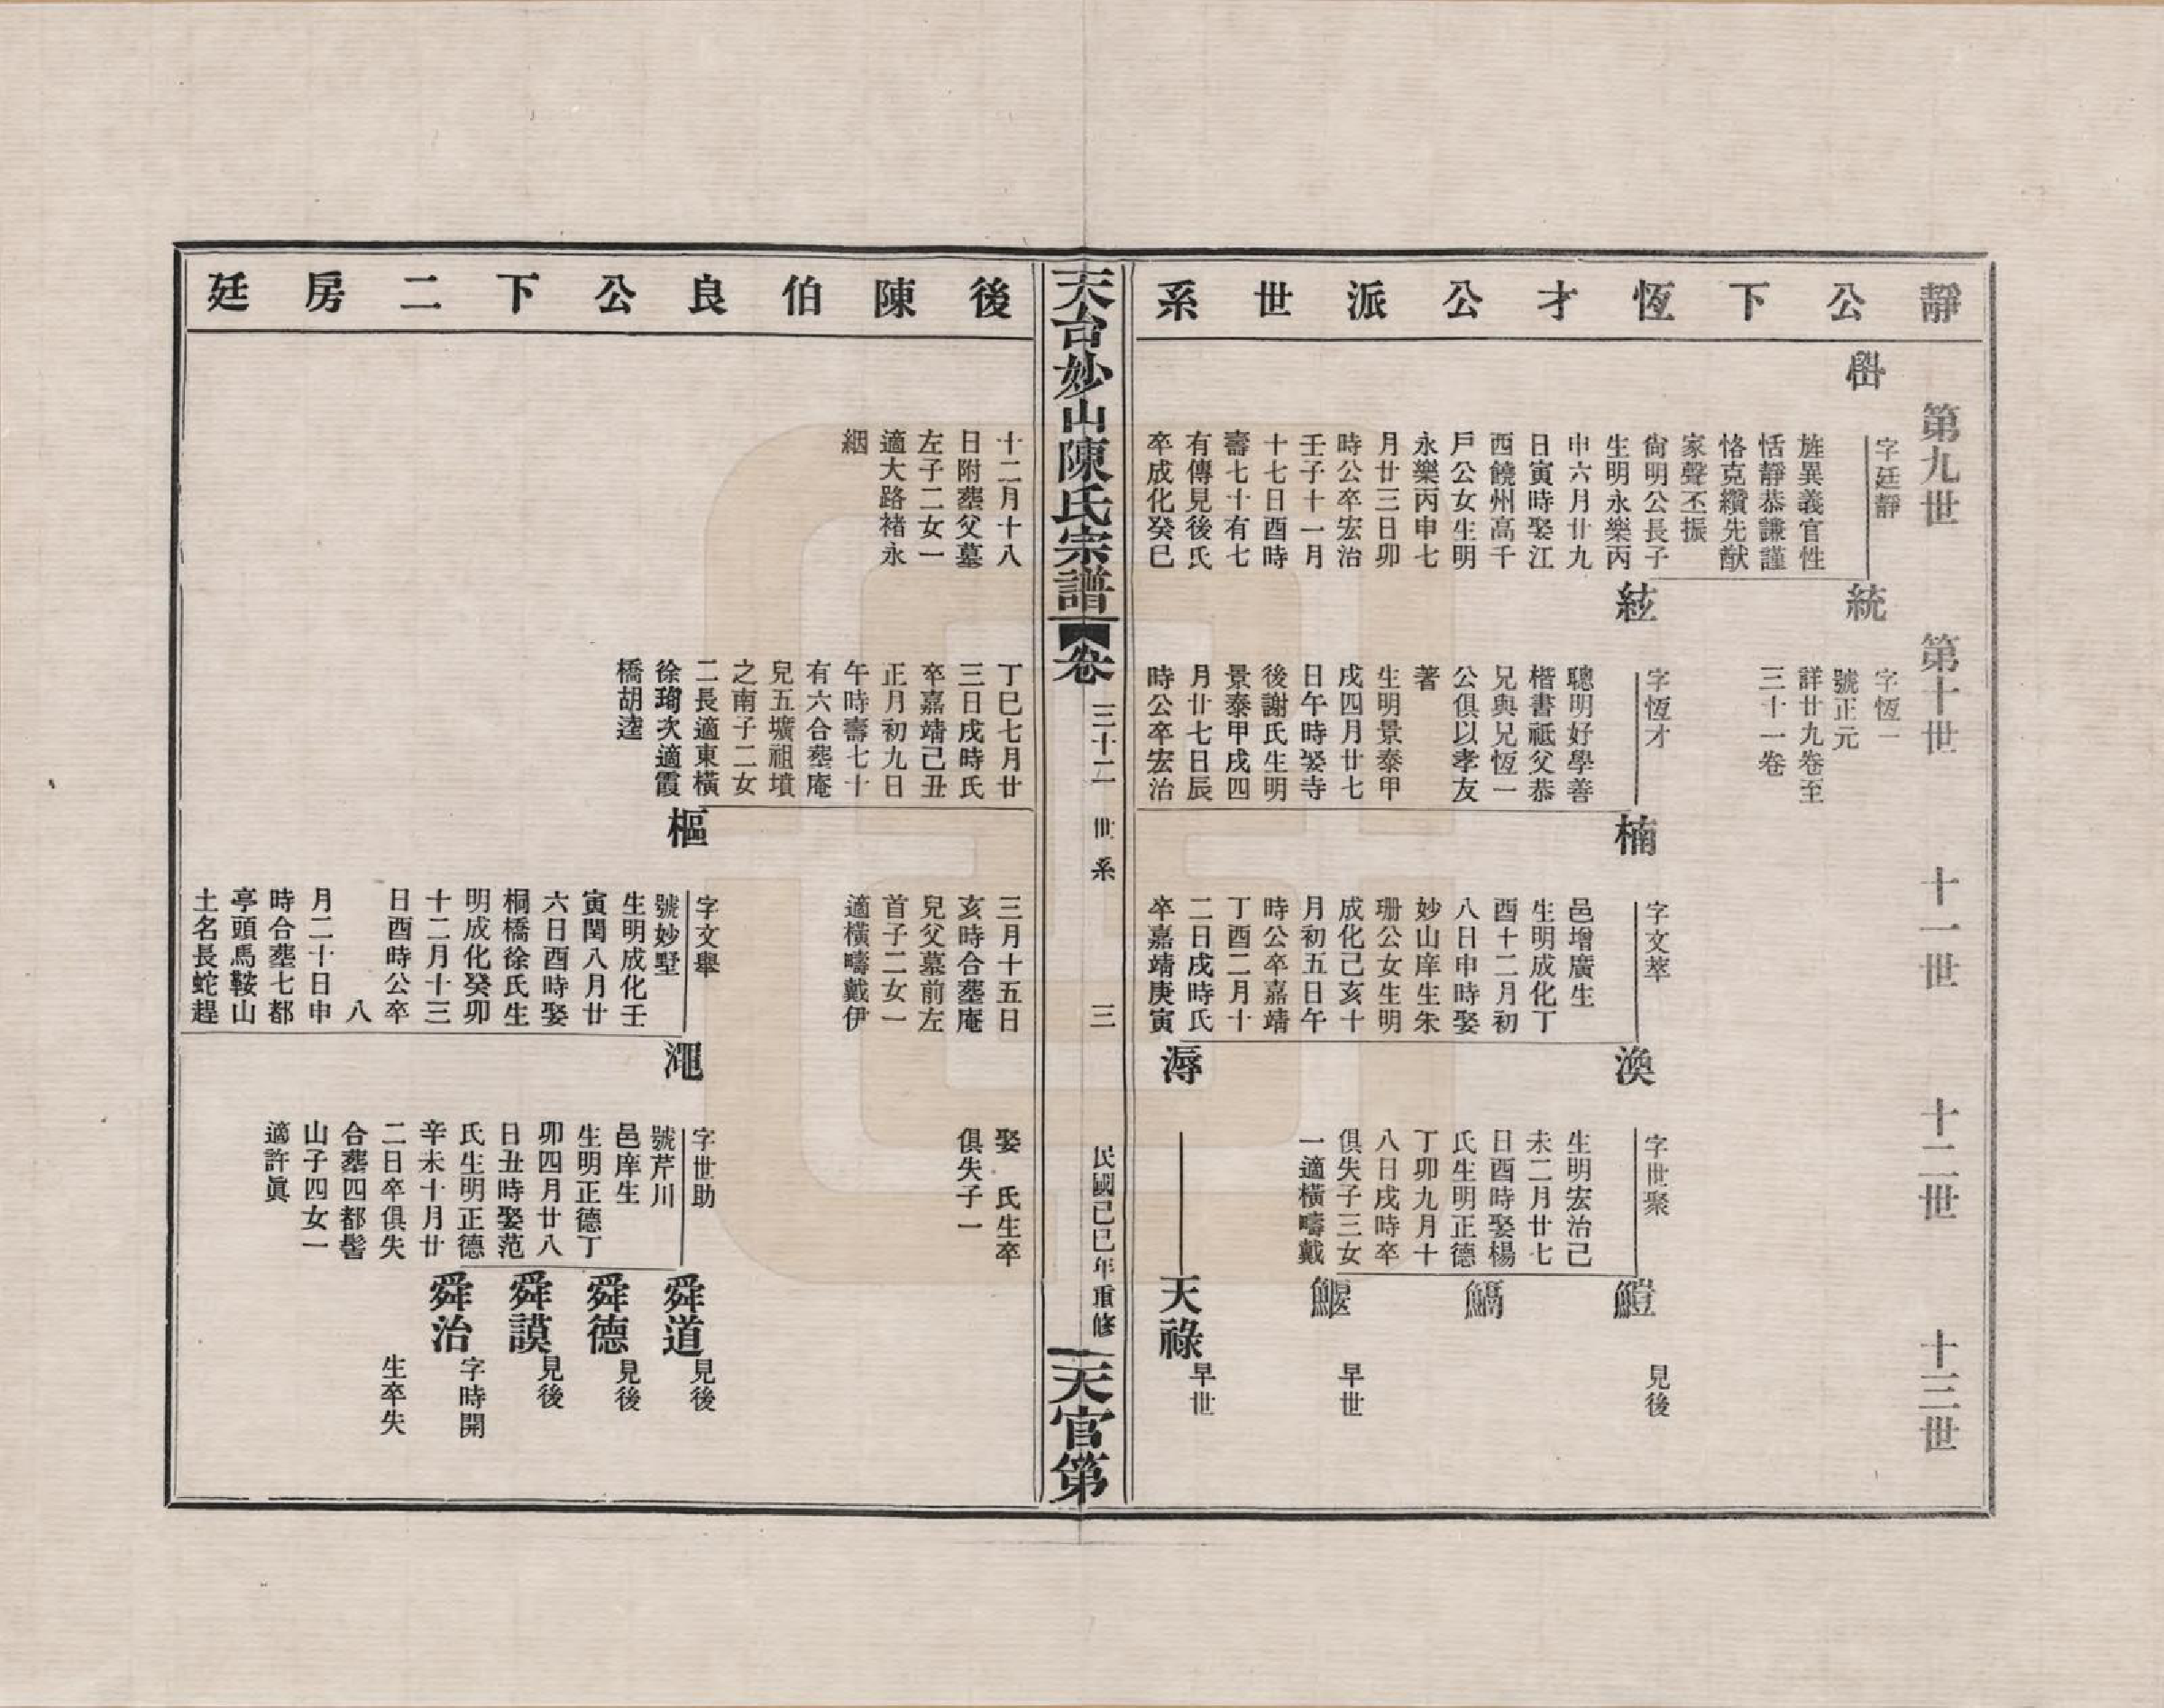 靜公下恆才公派世系
第九世
第十世
十一世
十二世
十三世
字廷靜
旌異義官性
恬靜恭謙謹
恪克纘先猷
家聲丕振
尙明公長子
生明永樂丙
申六月廿九
日寅時娶江
西饒州高千
戶公女生明
永樂丙申七
月廿三日卯
時公卒宏治
壬子十一月
十七日酉時
壽七十有七
有傳見後氏
卒成化癸巳
統
字恆一
號正元
詳廿九卷至
三十一卷
紘
字恆才
聰明好學善
楷書祗父恭
兄與兄恆一
公俱以孝友
著
生明景泰甲
戌四月廿七
日午時娶寺
後謝氏生明
景泰甲戌四
月廿七日辰
時公卒宏治
楠
字文萃
邑增廣生
生明成化丁
酉十二月初
八日申時娶
妙山庠生朱
珊公女生明
成化己亥十
月初五日午
時公卒嘉靖
丁酉二月十
二日戌時氏
卒嘉靖庚寅
渙
字世聚
生明宏治己
未二月廿七
日酉時娶楊
氏生明正德
丁卯九月十
八日戌時卒
俱失子三女
一適橫疇戴
溽
鱧
見後
鰝
鰋
早世
天祿
早世
天台妙山陳氏宗譜
卷三十二
世系
三
民國己巳年重修
天官第
後陳伯良公下二房廷
十二月十八
日附葬父墓
左子二女一
適大路褚永
絪
丁巳七月廿
三日戌時氏
卒嘉靖己丑
正月初九日
午時壽七十
有六合葬庵
兒五壙祖墳
之南子二女
二長適東橫
徐珣次適霞
橋胡逵
三月十五日
亥時合葬庵
兒父墓前左
首子二女一
適橫疇戴伊
娶　氏生卒
俱失子一
樞
字文舉
號妙墅
生明成化壬
寅閏八月廿
六日酉時娶
桐橋徐氏生
明成化癸卯
十二月十三
日酉時公卒
八
月二十日申
時合葬七都
亭頭馬鞍山
土名長蛇趕
澠
字世助
號芹川
邑庠生
生明正德丁
卯四月廿八
日丑時娶范
氏生明正德
辛未十月廿
二日卒俱失
合葬四都髻
山子四女一
適許眞
舜道
見後
舜德
見後
舜謨
見後
舜治
字時開
生卒失